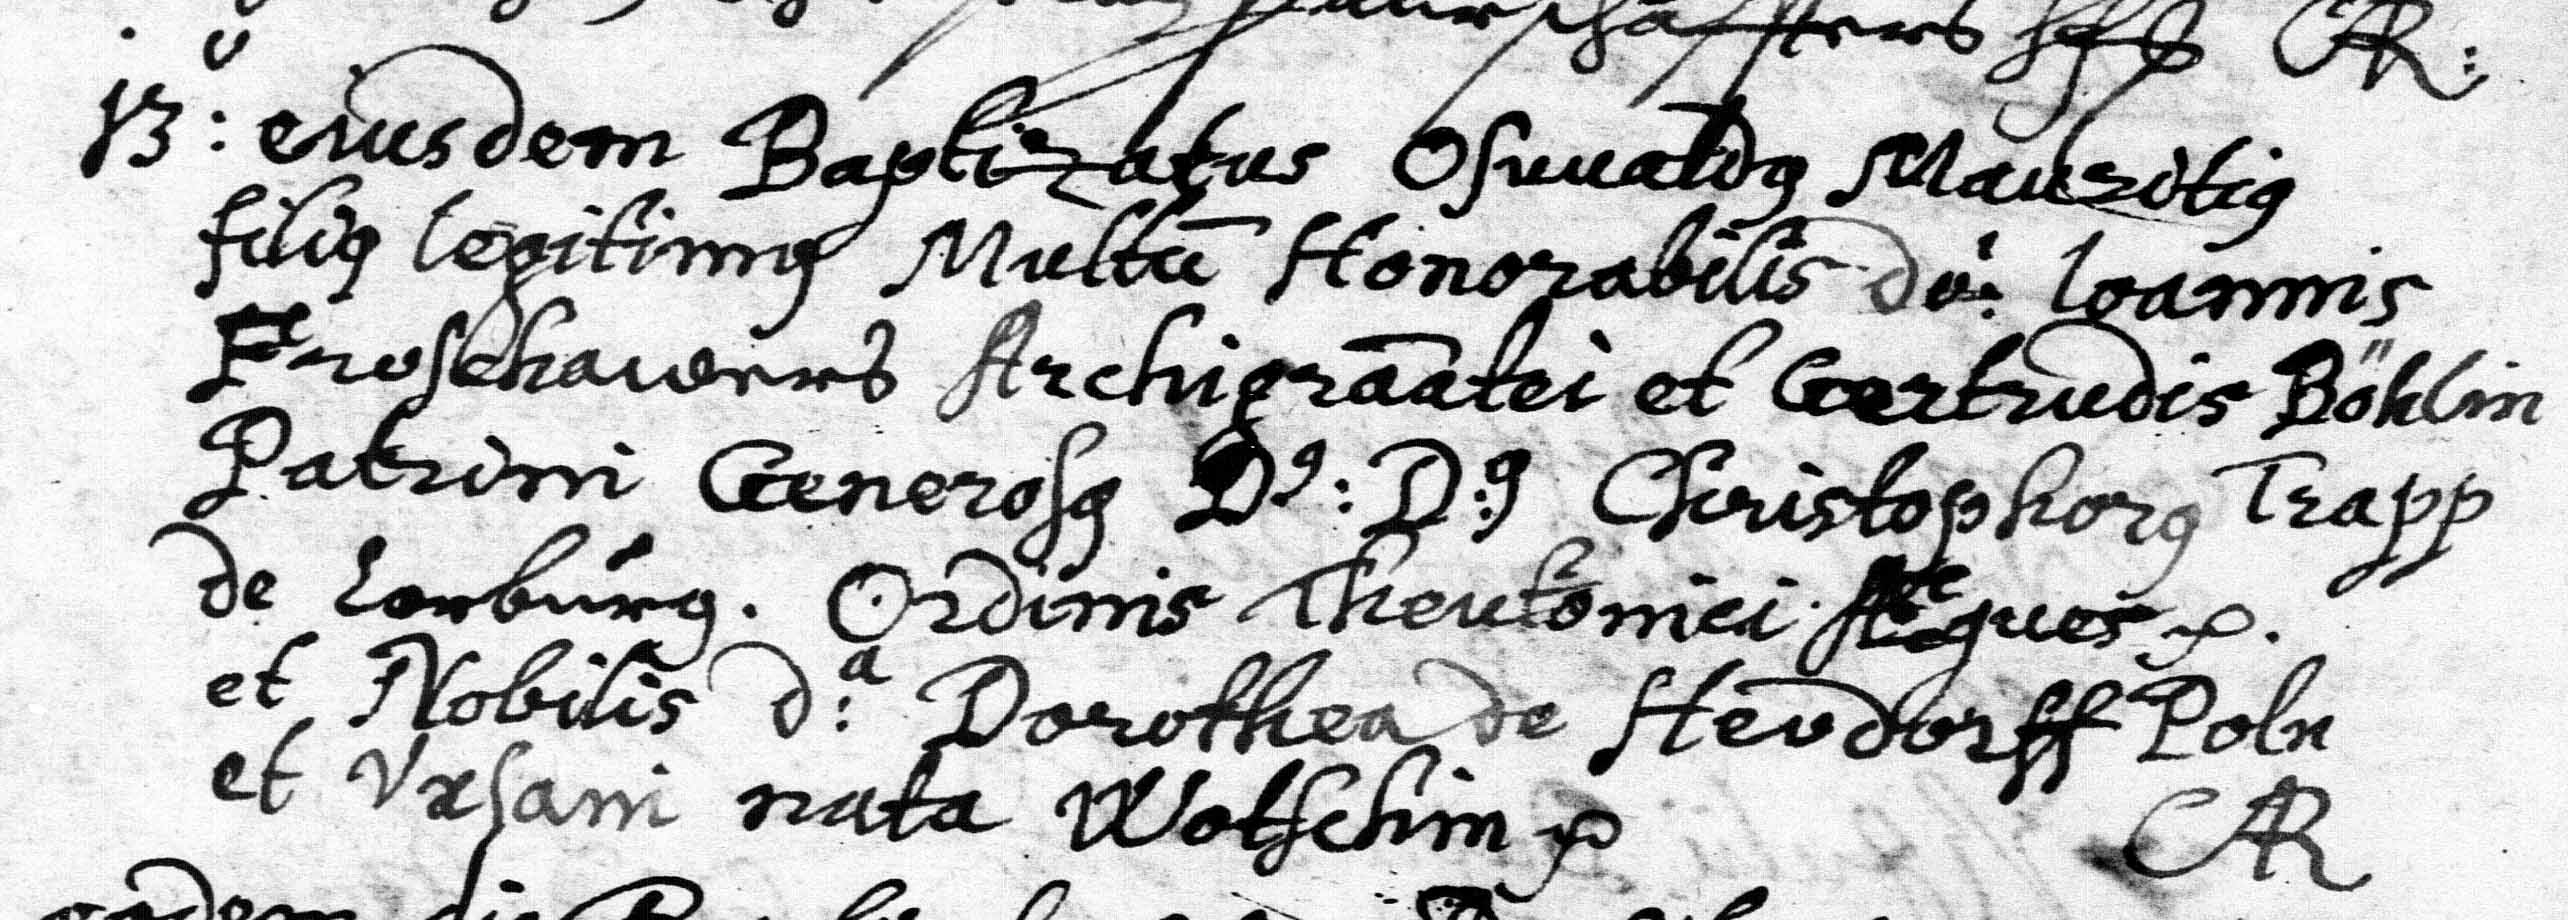 CAR:
13: eiusdem Baptizatus Osuualdꝯ Mauritiꝯ
filiꝯ legitimꝯ Multū Honorabilis dn̄: Ioannis
Froschauers Archigrāatei et Gertrudis Böhlin
Patrini Generosꝯ Dꝯ: Dꝯ: Christophorꝯ Trapp
de . Ordinis Theutonici Aeques
et Nobilis d:ᵃ Dorothea de Hevdorff Poln
et Vrsani nata Wotschin
CAR